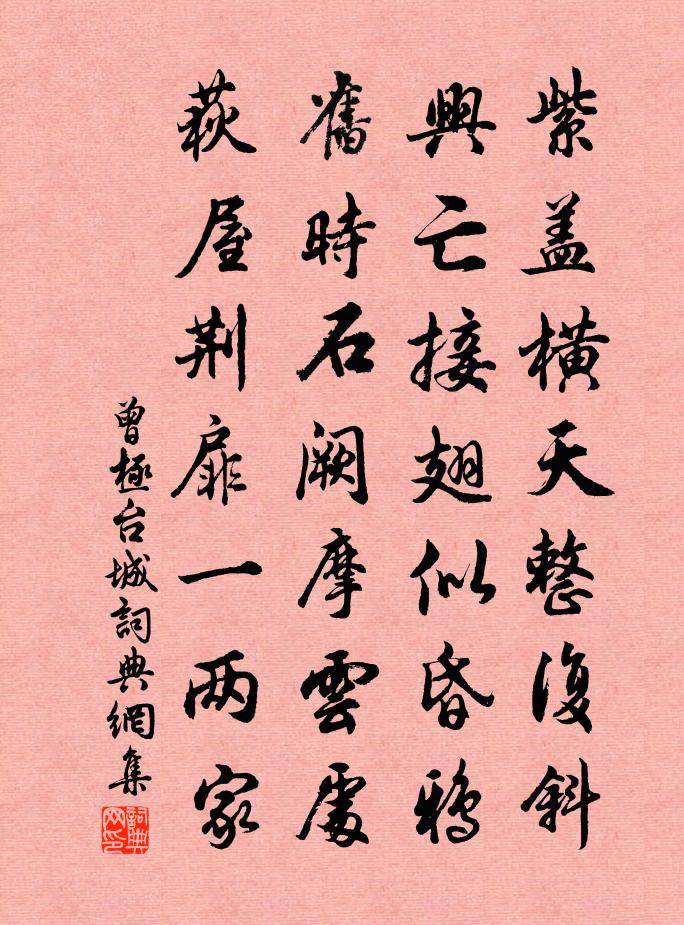 紫盖橫天整復斜
興亡接翅似昏鴉
舊時石闕摩雲處
荻屋荆扉一两家
曾極台城詞典網集
詞典网印